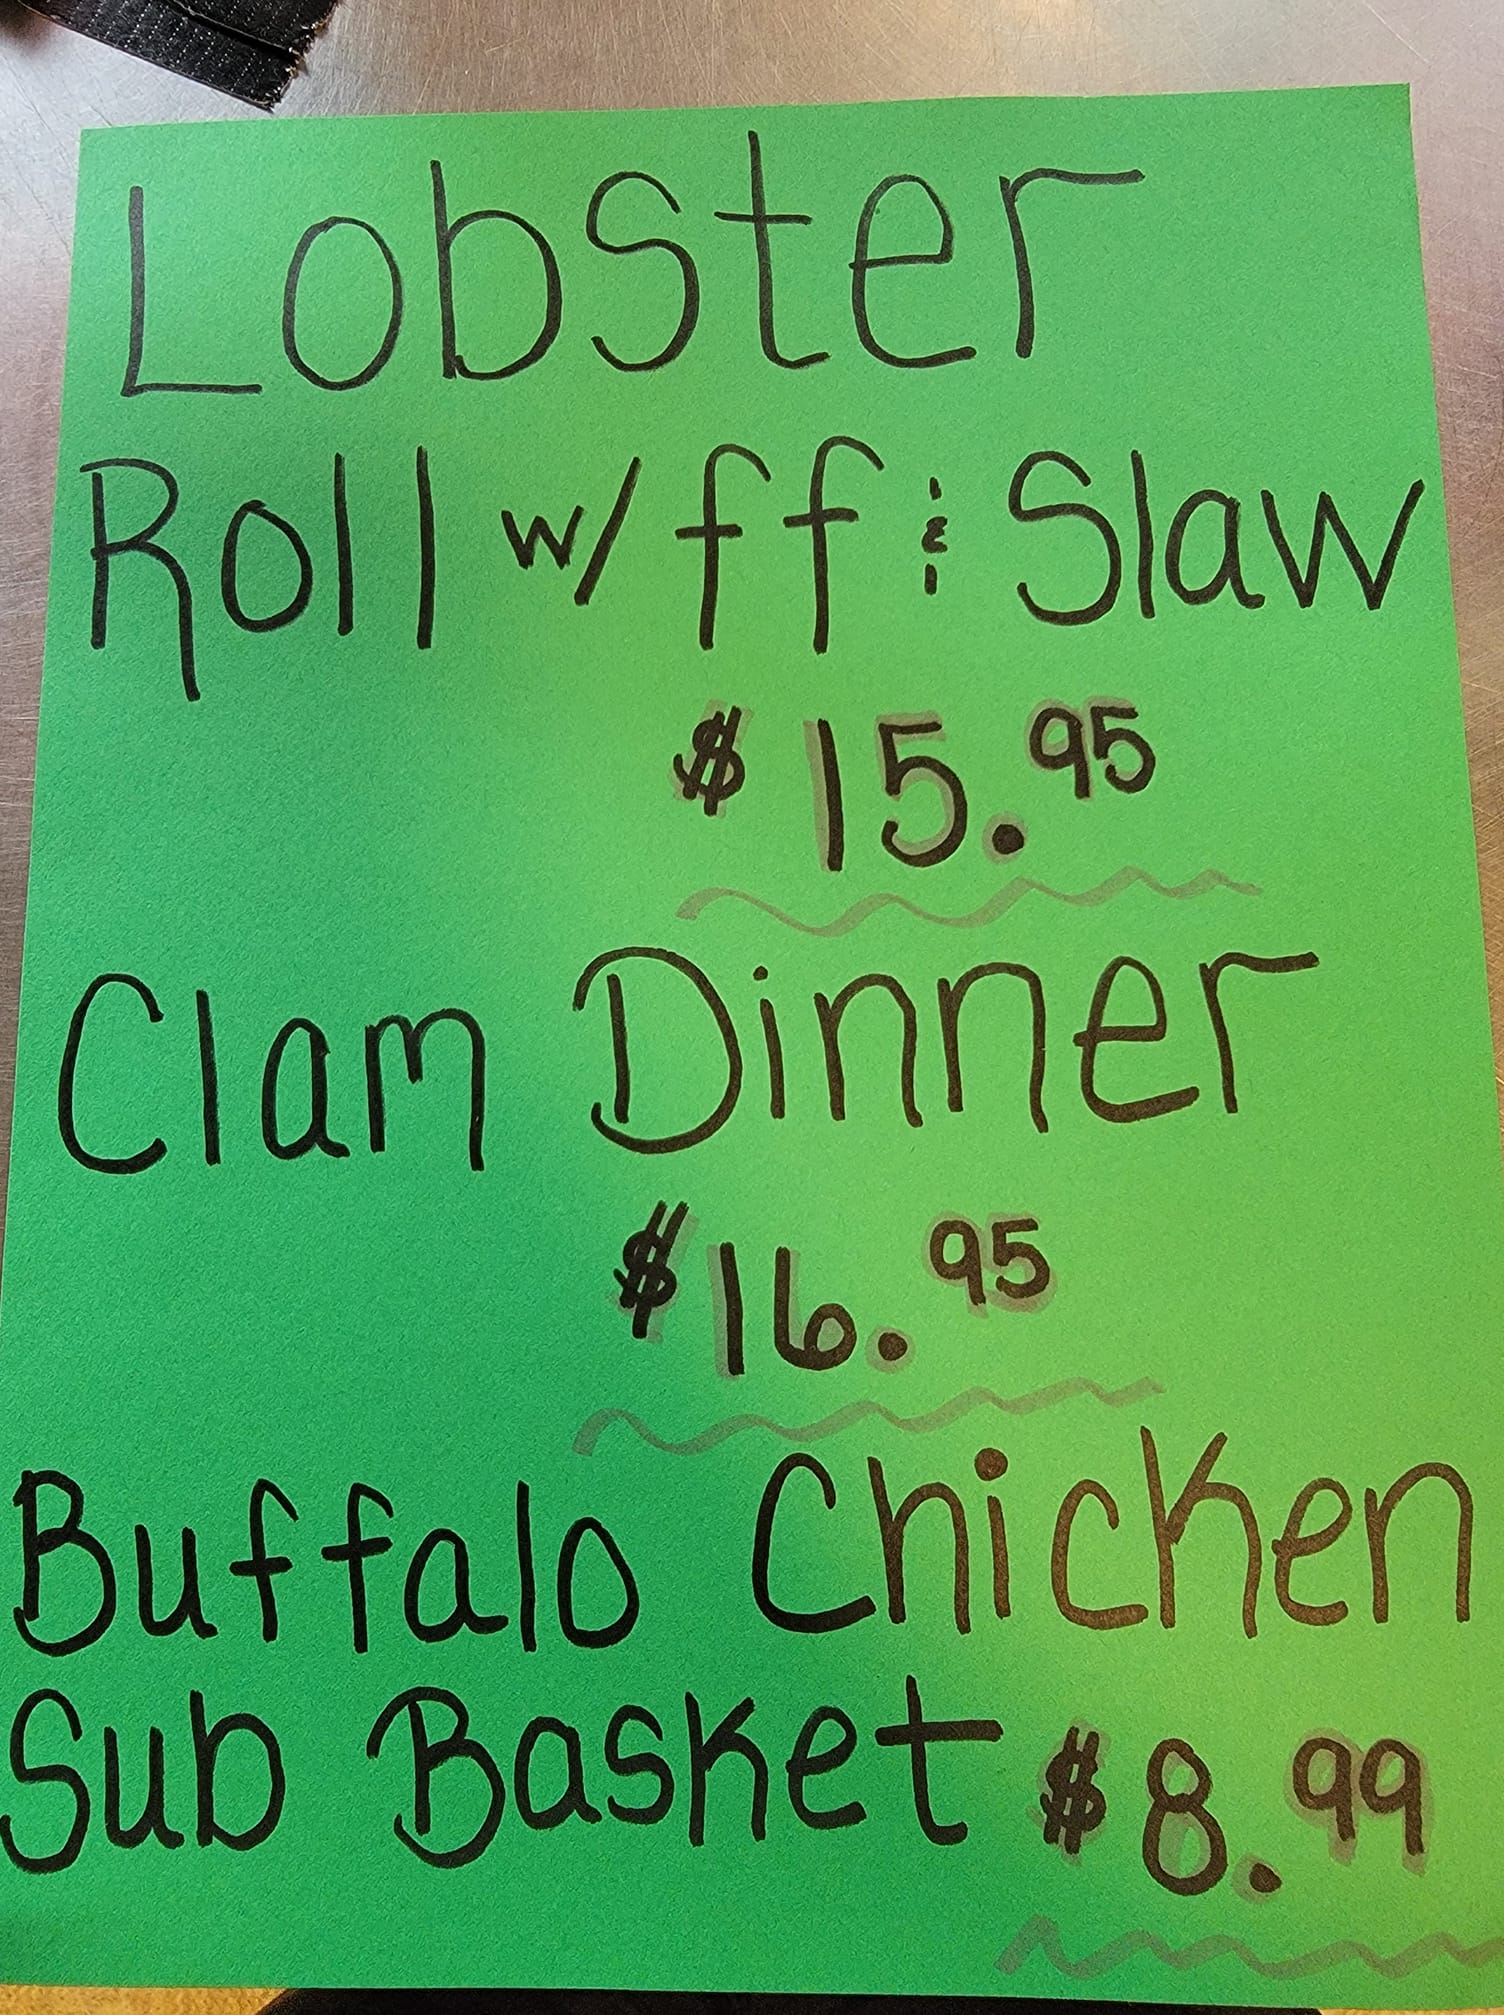 Lobster
Roll w/ ff & Slaw
$15.95
Clam Dinner
$16.95
Buffalo Chicken
Sub Basket $8.99